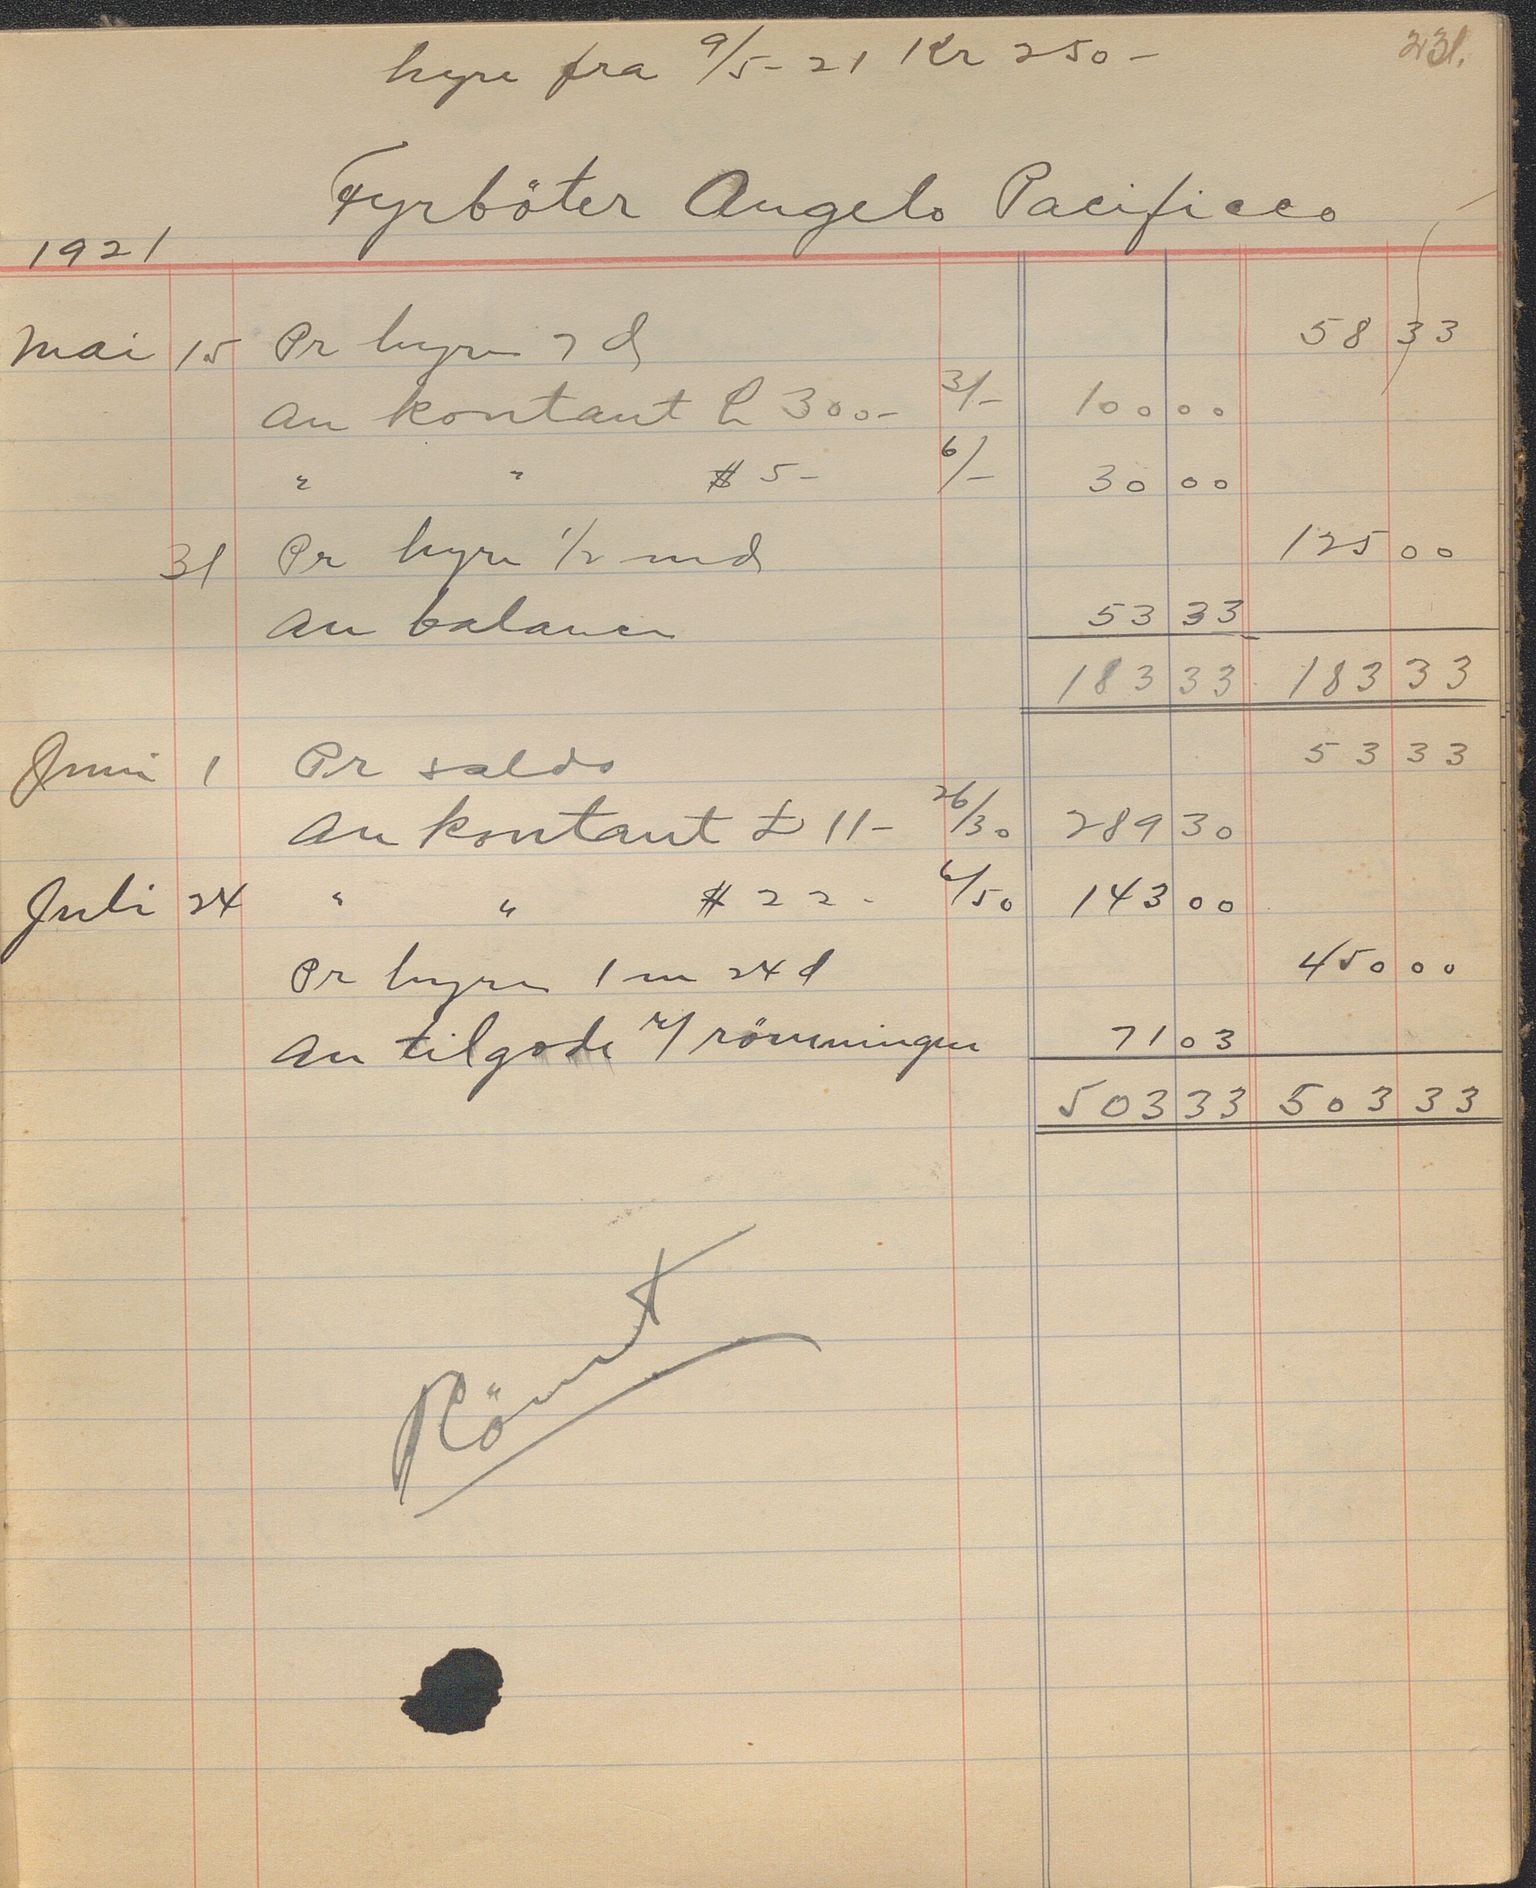 231.
hyre fra 9/5-21 Kr 250-
Fyrböter Angelo Pacificco
1921
Mai 15 Pr hyre 7 d 58 33
An kontant L 300- 31/- 100 00
" " $ 5- 6/- 30 00
31 Pr hyre 1/2 md 125 00
An balance 53 33
183 33 183 33
Juni 1 Pr saldo 53 33
An kontant £ 11- 26/30 289 30
Juli 24 " " $ 22- 6/50 143 00
Pr hyre 1 m 24 d 450 00
An tilgode v/ römningen 71 03
503 33 503 33
Römt